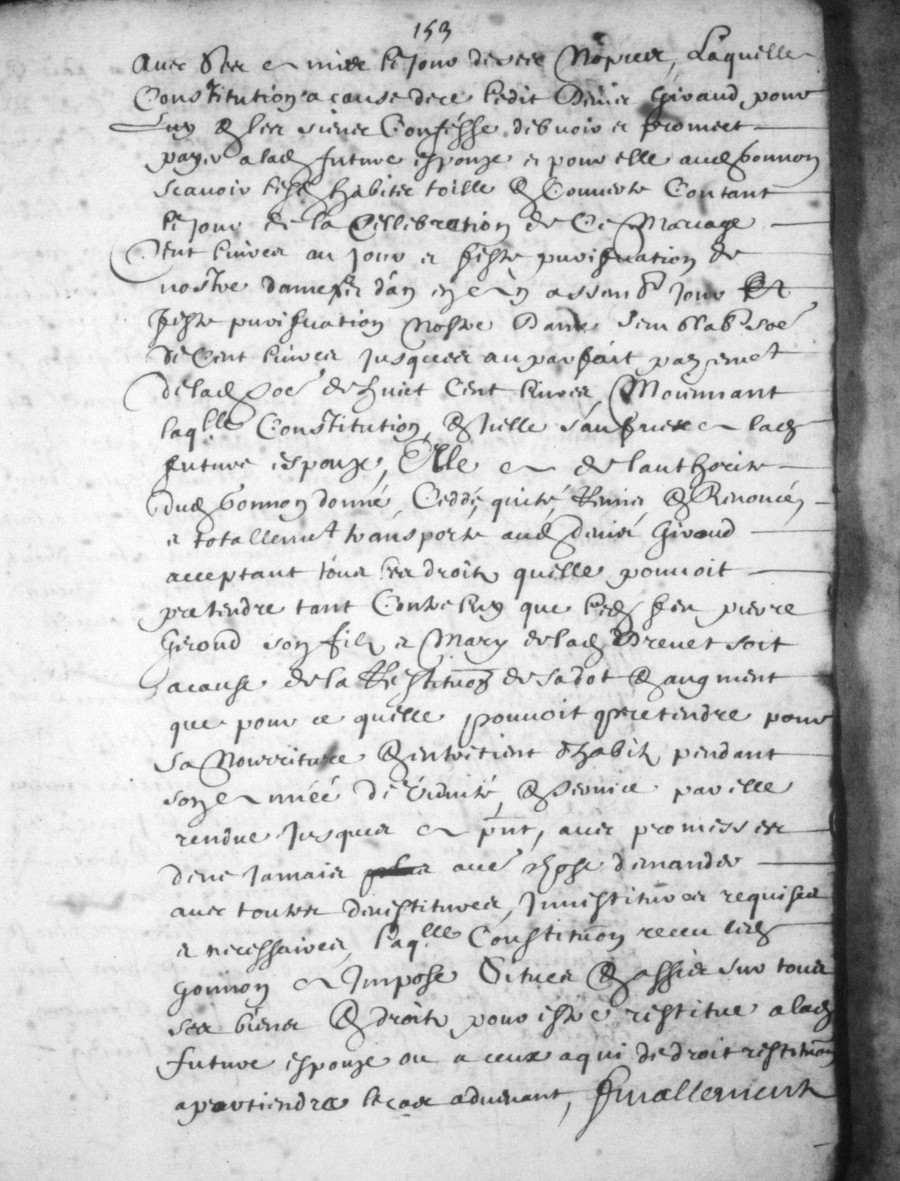 153
le jour de Nopces, Laquelle
Constitution a cause de ce ledit Denier Giroud pour
Luy & les siens Confesse debvoir et promect
payer a lad future espouze et pour elle aud gonnon
scavoir habitz toille & Couverte Contant
le jour de la Cellebration de Ce Mariage
Cent livres au jour et feste puriffication de
nostre dame et a semb jour Et
feste puriffication Nostre Dame semblab soe
de Cent livres jusques au parfait payement
de lad soe de huict Cent livres, Moiennant
laqlle Constitution, & icelle lad
future espouze, Elle de lauthorite
dud gonnon donné, Ceddé, quité, Remis, & Renoncé,
et totallemt transporté aud denier Giroud
acceptant tous les droitz quelle pouvoit
pretendre tant Contre luy que led feu pierre
Giroud son filz et Mary de lad Brenet soit
a cause de la Restituon de sa dot & augment
que pour ce quelle pouvoit pretendre pour
sa Nourriture & entretient dhabitz pendant
son année de viduité, & service par elle
rendue jusques a pnt, avec promesses
de ne jamais aucé chose demander
avec touttes devestitures, Jnvestitures requises
et necessaires, Laqlle Constituon receu led
gonnon a Jmposé Situés & assies sur tous
ses biens & droitz pour estre restitué a lad
future espouze ou a ceux a qui de droit restituon
apartiendra le cas advenant, finallement